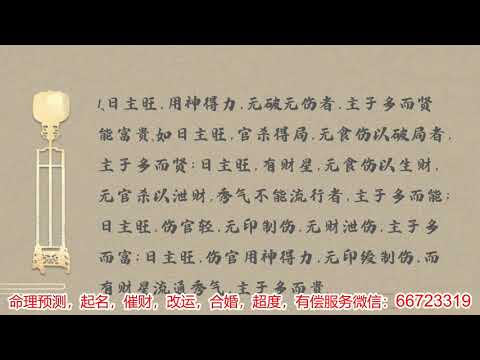 1、日主旺，用神得力，无破无伤者，主子多而贤
能富贵，如日主旺，官杀得局，无食伤以破局者，
主子多而贤；日主旺，有财星，无食伤以生财，
无官杀以泄财，秀气不能流行者，主子多而能；
日主旺，伤官轻，无印制伤，无财泄伤，主子多
而富；日主旺，伤官用神得力，无印绶制伤，而
有财星流通秀气，主子多而贵
命理预测，起名，催财，改运，合婚，超度，有偿服务微信：66723319